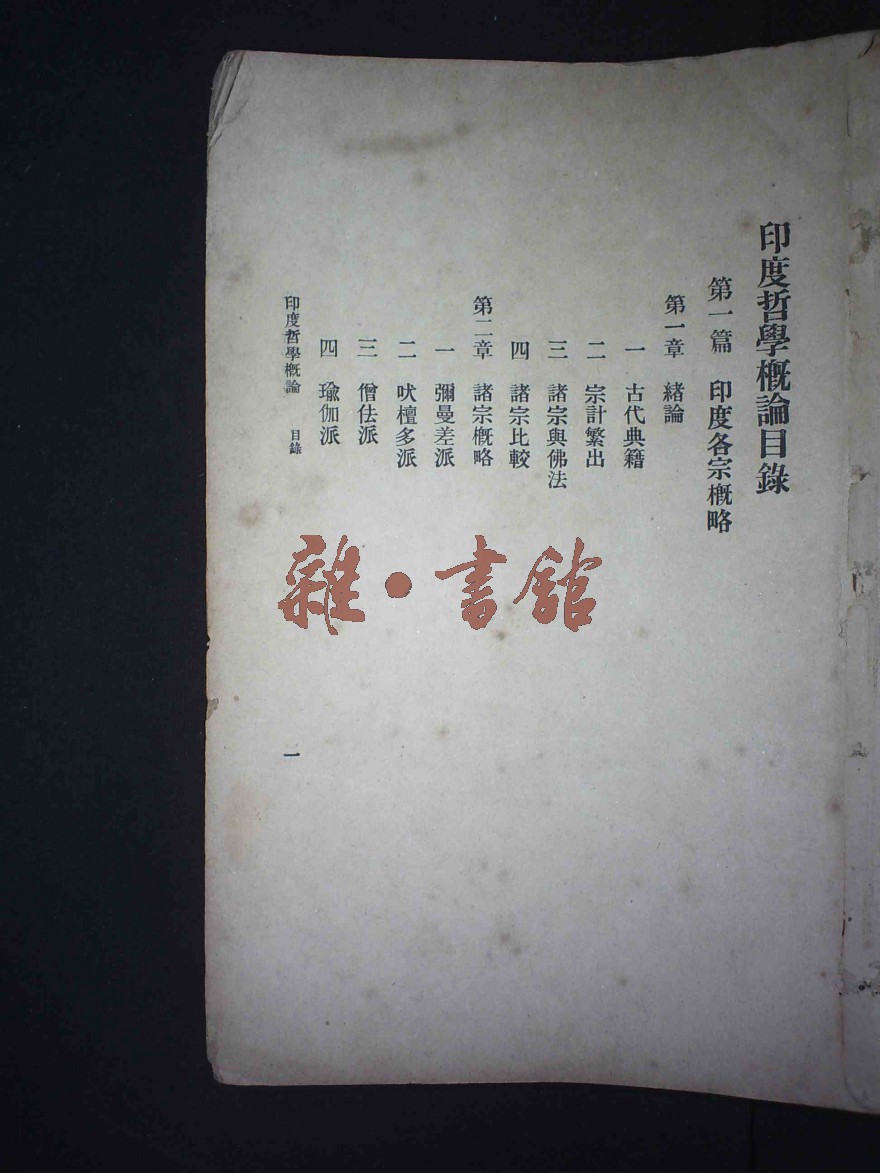 印度哲學概論目錄
第一篇 印度各宗概略
第一章 緒論
一 古代典籍
二 宗計繁出
三 諸宗與佛法
四 諸宗比較
第二章 諸宗概略
一 彌曼差派
二 吠檀多派
三 僧佉派
四 瑜伽派
印度哲學概論 目錄
一
雜·書館